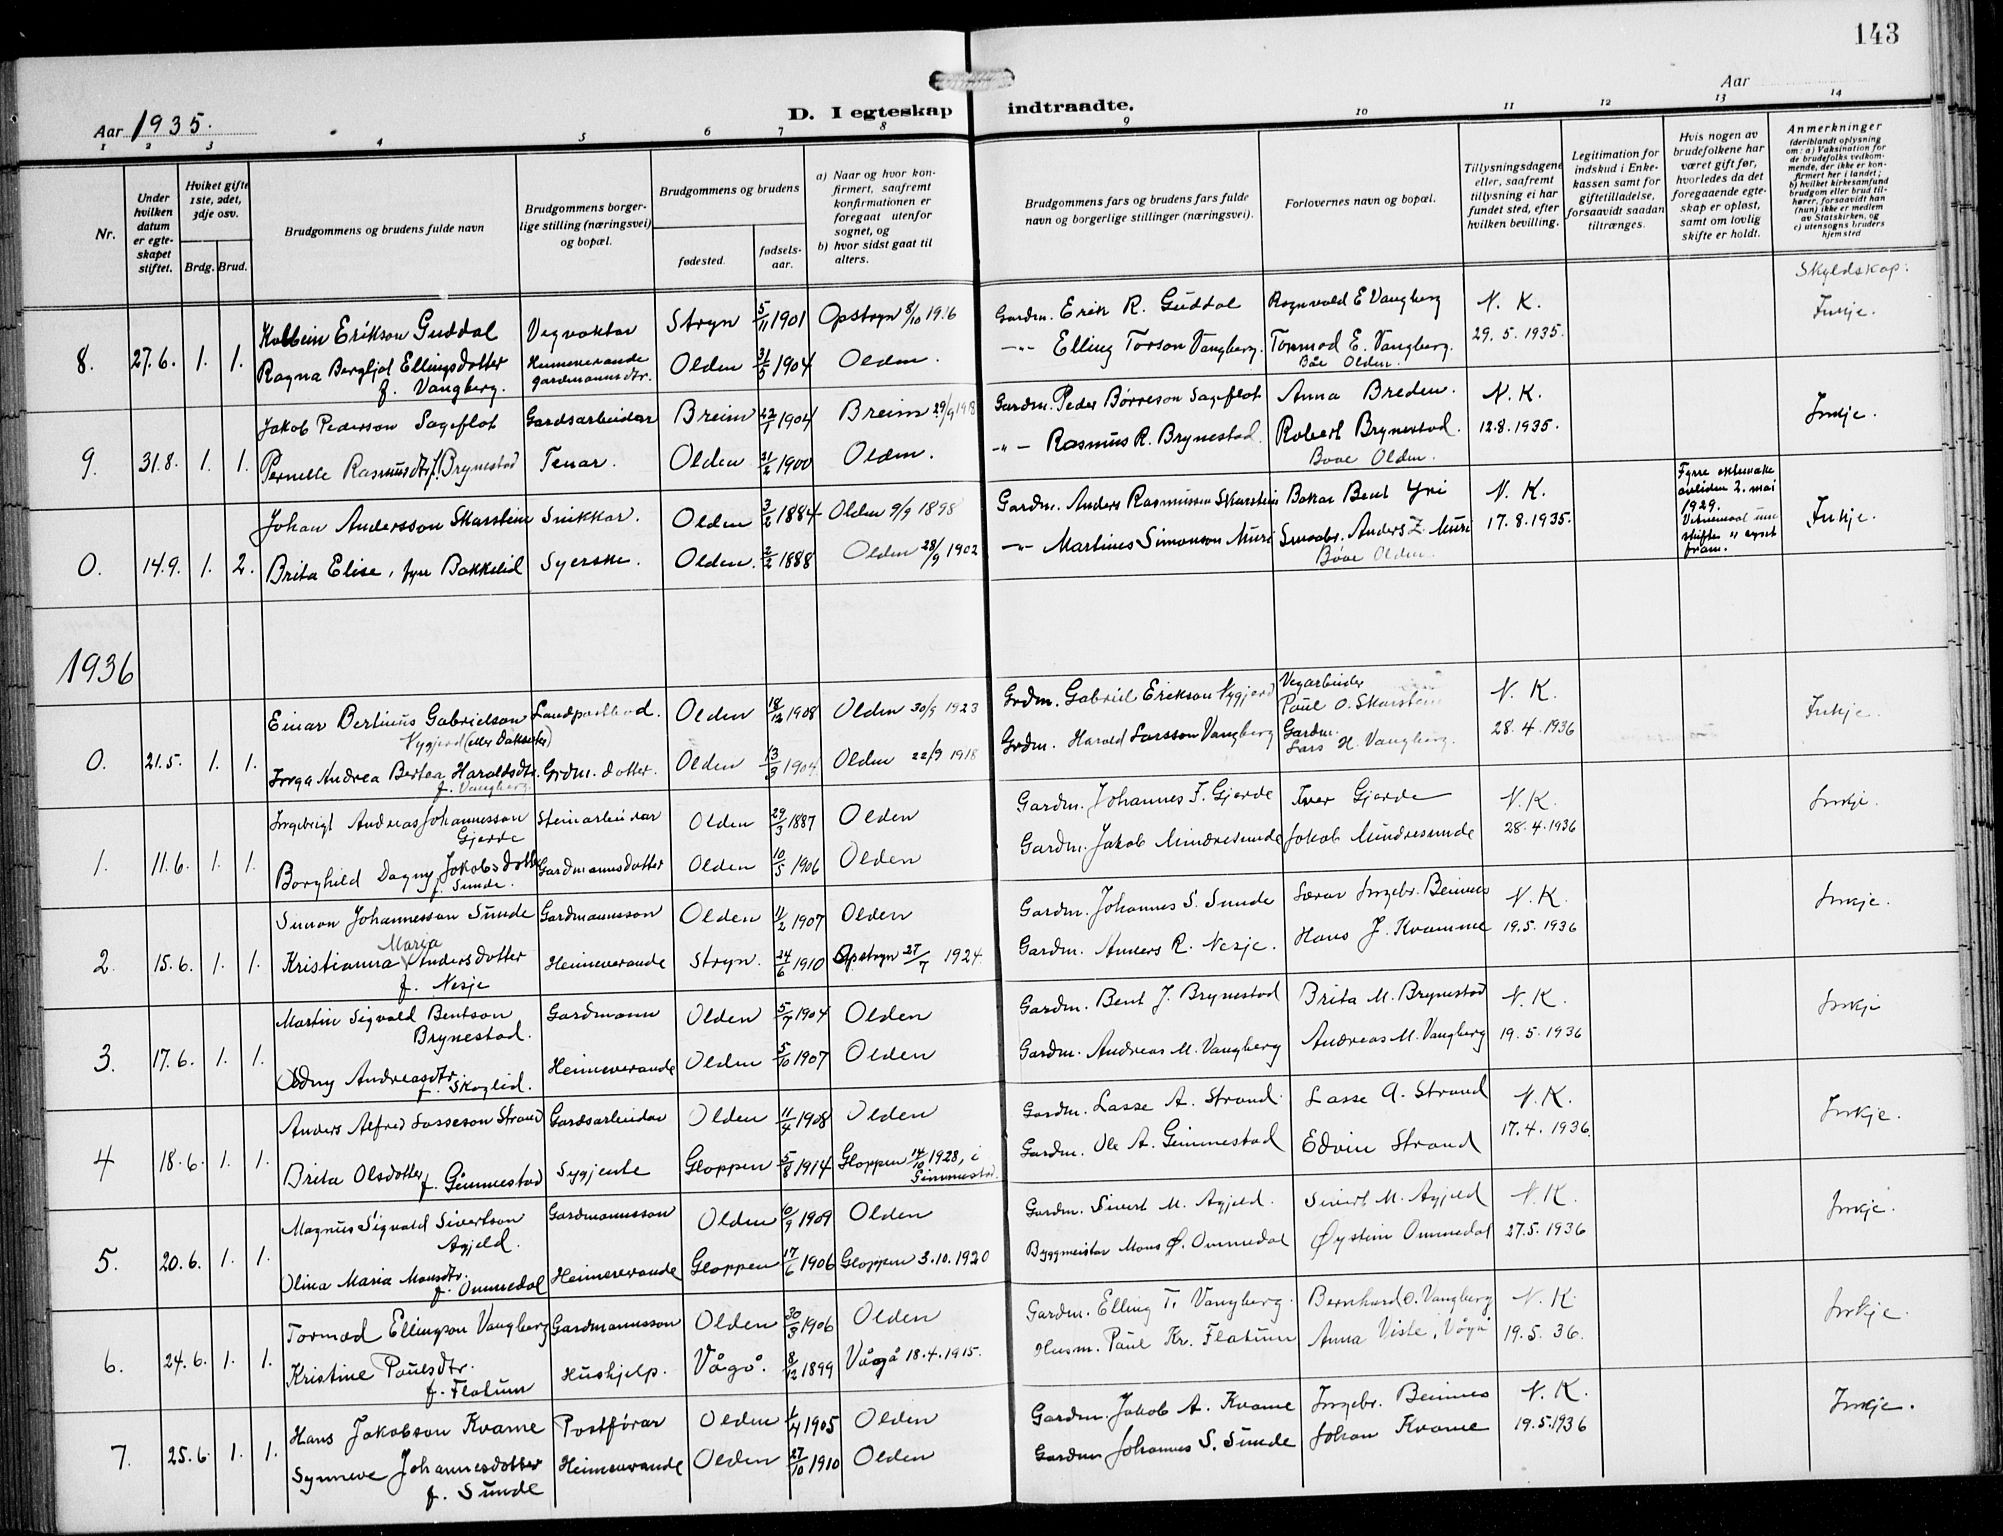 143
Aar 1935. D. I egteskap indtraadte. Aar
1 2 3 4 5 6 7 8 9 10 11 12 13 14
Nr.
Under hvilken datum er egteskapet stiftet.
Hviket gifte 1ste, 2det, 3dje osv.
Brdg. Brud.
Brudgommens og brudens fulde navn
Brudgommens borgerlige stilling (næringsvei) og bopæl.
Brudgommens og brudens
fødested. fødselsaar.
a) Naar og hvor konfirmert, saafremt konfirmationen er foregaat utenfor sognet, og
b) hvor sidst gaat til alters.
Brudgommens fars og brudens fars fulde navn og borgerlige stillinger (næringsvei).
Forlovernes navn og bopæl.
Tillysningsdagene eller, saafremt tillysning ei har fundet sted, efter hvilken bevilling.
Legitimation for indskud i Enkekassen samt for giftetilladelse, forsaavidt saadan tiltrænges.
Hvis nogen av brudefolkene har været gift før, hvorledes da det foregaaende egteskap er opløst, samt om lovlig skifte er holdt.
Anmerkninger (deriblandt oplysning om: a) Vaksination for de brudefolks vedkommende, der ikke er konfirmert her i landet; b) hvilket kirkesamfund brudgom eller brud tilhører, forsaavidt han (hun) ikke er medlem av Statskirken, og c) utensogns bruders hjemsted
Skyldskap:
Kolbein Erikson Guddal Vegvaktar Stryn 5/11 1901 Opstryn 8/10 1916 Gardm. Erik R. Guddal Ragnvald E Vangberg N. K. Inkje.
8. 27.6. 1. 1. Ragna Bergljot Ellingsdotter f. Vangberg. Heimeverande gardmannsdtr. Olden 31/5 1904 Olden. -"- Elling Torson Vangberg. Tormod E. Vangberg. Båe Olden. 29. 5. 1935.
Jakob Pederson Sageflot Gardsarbeidar Breim 22/1 1904 Breim 29/9 1918 Gardm. Peder Børreson Sageflot Anna Breden. N. K. Inkje.
9. 31.8. 1. 1. Pernille Rasmusdtr f. Brynestad Tenar. Olden 21/2 1900 Olden. -"- Rasmus R. Brynestad. Robert Brynestad. Bøe Olden. 12.8.1935.
Johan Andersson Skarstein Snikkar. Olden 3/2 1884 Olden 9/9 1898 Gardm. Anders Rasmussen Skarstein Bakar Bent Yri N. K. Fyrre ektemake avliden 2. mai 1929. skifte er synt fram. Inkje.
0. 14.9. 1. 2. Brita Elise, fyrr Bakkelid Syerske. Olden. 2/2 1888 Olden 28/9 1902 -"- Martines Simonson Muri Smaabr. Anders Z. Muri Båe Olden. 17.8.1935.
1936
Einar Bertinus Gabrielson Nygjerd (eller Daksæter) Landpostbod. Olden 18/12 1908 Olden 30/9 1923 Grdm. Gabriel Erikson Nygjerd Vegarbeider Paul O. Skarstein N. K. Inkje.
0. 21.5. 1. 1. Inga Andrea Bertea Haraldsdtr. f. Vangberg. Grdm. dotter. Olden 13/3 1904 Olden 22/9 1918 Grdm. Harald Larsson Vangberg Gardm. Lars H. Vangberg. 28. 4. 1936
Ingebrigt Andreas Johannesson Gjerde Steinarbeidar Olden 29/3 1887 Olden Gardm. Johannes F. Gjerde Iver Gjerde N. K. Inkje.
1. 11.6. 1. 1. Borghild Dagny Jakobsdotter f. Sunde. Gardmannsdotter Olden 10/5 1906 Olden Gardm. Jakob Mindresunde Jakob Mindresunde 28.4.1936
Simon Johannesson Sunde Gardmannsson Olden 11/2 1907 Olden Gardm. Johannes S. Sunde Lærar Ingebr. Beinnes N. K. Inkje.
2. 15.6. 1. 1. Kristianna Maria Andersdotter f. Nesje Heimeverande Stryn. 24/6 1910 Opstryn 27/7 1924 Gardm. Anders R. Nesje. Hans J. Kvamme 19.5.1936
Martin Sigvald Bentson Brynestad. Gardmann Olden 5/7 1904 Olden Gardm. Bent J. Brynestad Brita M. Brynestad N. K. Inkje
3. 17.6. 1. 1. Oddny Andreasdtr. f. Skoglid. Heimeverande Olden 5/10 1907 Olden Gardm. Andreas M. Vangberg Andreas M. Vangberg 19.5.1936
Anders Alfred Lasseson Strand Gardsarbeidar Olden 11/4 1908 Olden Gardm. Lasse A. Strand. Lasse A. Strand N. K. Inkje.
4 18.6. 1. 1. Brita Olsdotter f. Gimmestad Sygjente Gloppen 5/8 1914 Gloppen 14/10 1928, i Gimmestad. Gardm. Ole A. Gimmestad Edvin Strand 17.4.1936.
Magnus Sigvald Sivertson Agjeld. Gardmannsson Olden 10/9 1909 Olden Gardm. Sivert M. Agjeld. Sivert M. Agjeld N. K. Inkje.
5. 20.6. 1. 1. Olina Maria Monsdtr. f. Ommedal Heimeverande Gloppen 17/6 1906 Gloppen 3.10.1920 Byggmeistar Mons Ø. Ommedal Øystein Ommedal 27.5.1936
Tormod Ellingson Vangberg Gardmannsson Olden 30/3 1906 Olden Gardm. Elling T. Vangberg. Bernhard O. Vangberg N. K. Inkje.
6. 24.6. 1. 1. Kristine Paulsdtr. f. Flatum Hushjelp. Vågå. 8/12 1899 Vågå 18.4.1915. Husm. Paul Kr. Flatum Anna Viste, Vågå 19.5.36.
Hans Jakobson Kvame Postførar Olden 1/4 1905 Olden Gardm. Jakob A. Kvame Ingebr. Beinnes N. K. Inkje.
7. 25.6 1. 1. Synneve Johannesdotter f. Sunde Heimeverande Olden 27/10 1910 Olden Gardm Johannes S. Sunde Johan Kvame 19.5.1936